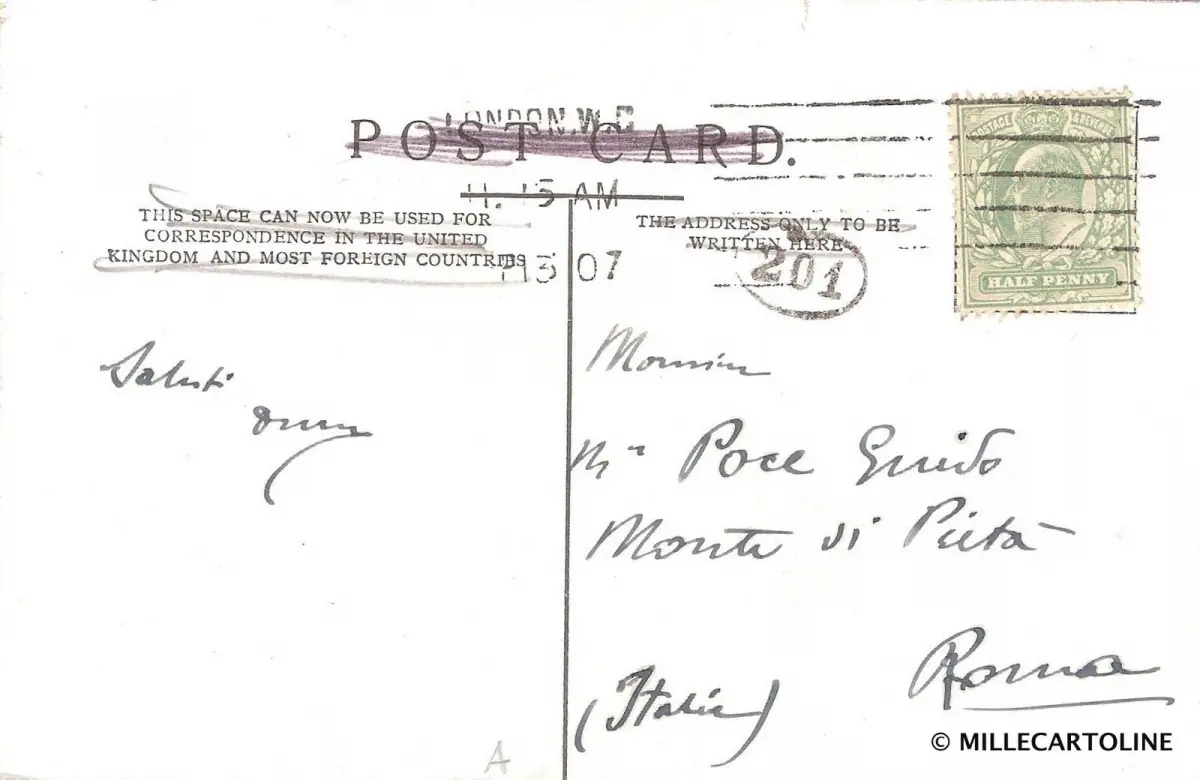 LONDON.W.C
POST CARD.
11.15 AM
THIS SPACE CAN NOW BE USED FOR
CORRESPONDENCE IN THE UNITED
KINGDOM AND MOST FOREIGN COUNTRIES
THE ADDRESS ONLY TO BE
WRITTEN HERE
07
201
POSTAGE & REVENUE
HALF PENNY
Saluti
Poce Guido
Monte di Pietà
Roma
(Italia)
A
© MILLECARTOLINE